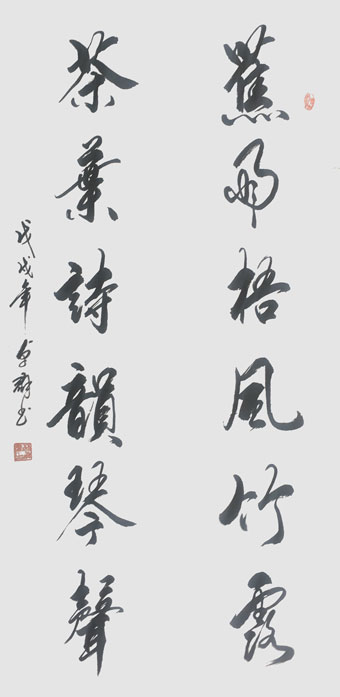 蕉雨梧風竹露
茶葉詩韻琴聲
戊戌年卓群书